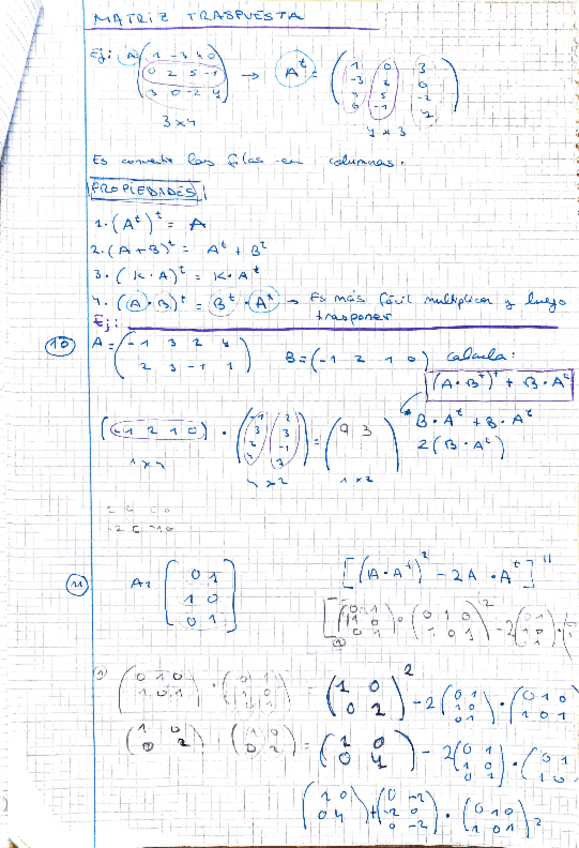 MATRIZ TRASPUESTA
Ej: A = ( 1 -3 4 0 / 0 2 5 -1 / 3 0 -2 4 ) → A^t = ( 1 0 3 / -3 2 0 / 4 5 -2 / 0 -1 4 )
3x4 4x3
Es convertir las filas en columnas.
PROPIEDADES
1. (A^t)^t = A
2. (A+B)^t = A^t + B^t
3. (K·A)^t = K·A^t
4. (A·B)^t = B^t · A^t → Es más fácil multiplicar y luego
trasponer
Ej:
10 A = ( -1 3 2 4 / 2 3 -1 1 ) B = (-1 2 1 0) calcula:
(A·B^t)^t + B·A^t
B·A^t + B·A^t
2(B·A^t)
(-1 2 1 0) · ( -1 2 / 3 3 / 2 -1 / 4 ) = ( 9 3 )
1x4 4x2 1x2
11 A = [ 0 1 / 1 0 / 0 1 ] [(A·A^t)^2 - 2A·A^t]^11
[ ( 0 1 / 1 0 / 0 1 ) · ( 0 1 0 / 1 0 1 ) ^2 - 2 ( 0 1 / 1 0 / 0 1 ) · (
① ( 0 1 0 / 1 0 1 ) · ( 0 1 / 1 0 / 0 1 ) = ( 1 0 / 0 2 )^2 - 2 ( 0 1 / 1 0 / 0 1 ) · ( 0 1 0 / 1 0 1
( 1 0 / 0 2 ) · ( 1 0 / 0 2 ) = ( 1 0 / 0 4 ) - 2 ( 0 1 / 1 0 / 0 1 ) · ( 0 1 / 1 0
( 1 0 / 0 4 ) + ( 0 -2 / -2 0 / 0 -2 ) · ( 0 1 0 / 1 0 1 )